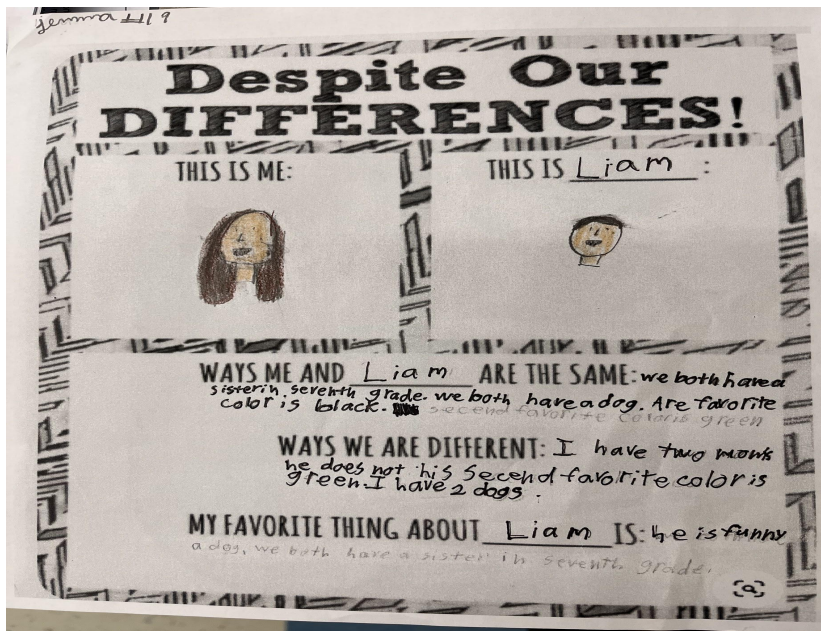 Jemma
Despite Our
DIFFERENCES!
THIS IS ME:
THIS IS Liam :
WAYS ME AND Liam ARE THE SAME: we both have a
sister in seventh grade. we both have a dog. Are favorite
color is black. secend favorite color is green
WAYS WE ARE DIFFERENT: I have two moms
he does not his secend favorite color is
green. I have 2 dogs.
MY FAVORITE THING ABOUT Liam IS: he is funny
a dog, we both have a sister in seventh grade.